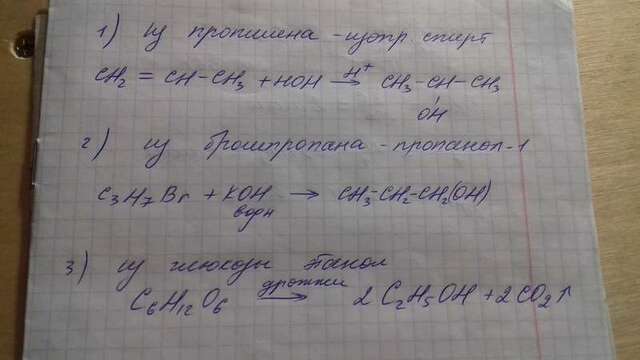 1) из пропилена - изопр. спирт
CH₂ = CH-CH₃ + HOH →H⁺ CH₃ - CH - CH₃
OH
2) из бромпропана - пропанол-1
C₃H₇Br + KOH → CH₃-CH₂-CH₂(OH)
водн
3) из глюкозы этанол
C₆H₁₂O₆ →дрожжи 2 C₂H₅OH + 2CO₂↑